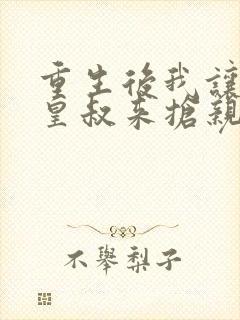 重生後我讓
皇叔来搶親
不舉梨子